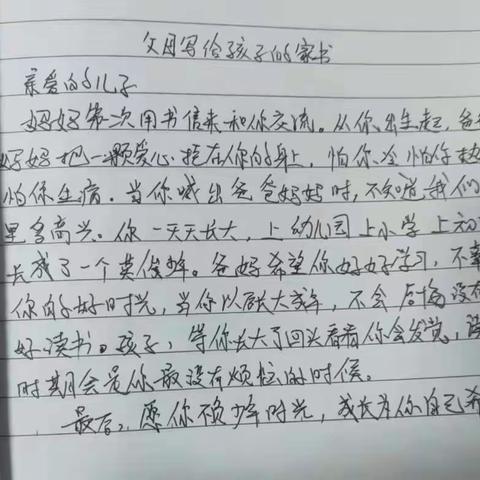 父母写给孩子的家书
亲爱的儿子
妈妈第一次用书信来和你交流。从你出生起,爸
妈妈把一颗爱心挂在你的身上,怕你冷怕你热
怕你生病。当你喊出爸爸妈妈时,不知道我们
里多高兴。你一天天长大,上幼儿园上小学上初
长成了一个英俊少年。爸妈希望你好好学习,不辜
你的好时光,当你以后长大成年,不会后悔没有
好读书。孩子,等你长大了回头看看你会发觉,
时期会是你最没有烦恼的时候。
最后,愿你不负少年时光,成长为你自己希